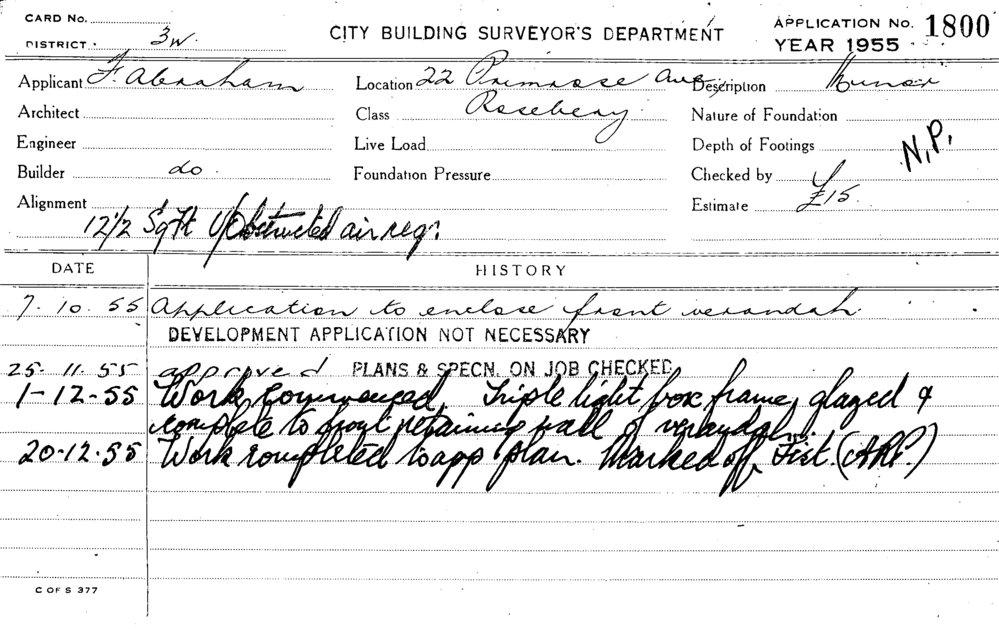 CARD No.
DISTRICT. 3W.
CITY BUILDING SURVEYOR'S DEPARTMENT
APPLICATION No. 1800
YEAR 1955
Applicant F. Abraham
Location 22 Primrose Ave,
Description Minor
Architect
Class Rosebery
Nature of Foundation
Engineer
Live Load
Depth of Footings
N.P.
Builder do.
Foundation Pressure
Checked by
Alignment
Estimate £15.
12½ Sq Ft U/Obstructed air req.
DATE HISTORY
7. 10. 55 Application to enclose front verandah.
DEVELOPMENT APPLICATION NOT NECESSARY
25. 11. 55 approved PLANS & SPECN. ON JOB CHECKED
1-12-55 Work commenced. Triple light box frame, glazed &
complete to front retaining wall of verandah.
20.12.55 Work completed to app plan. Marked off, Dist. (ARP.)
C OF S 377